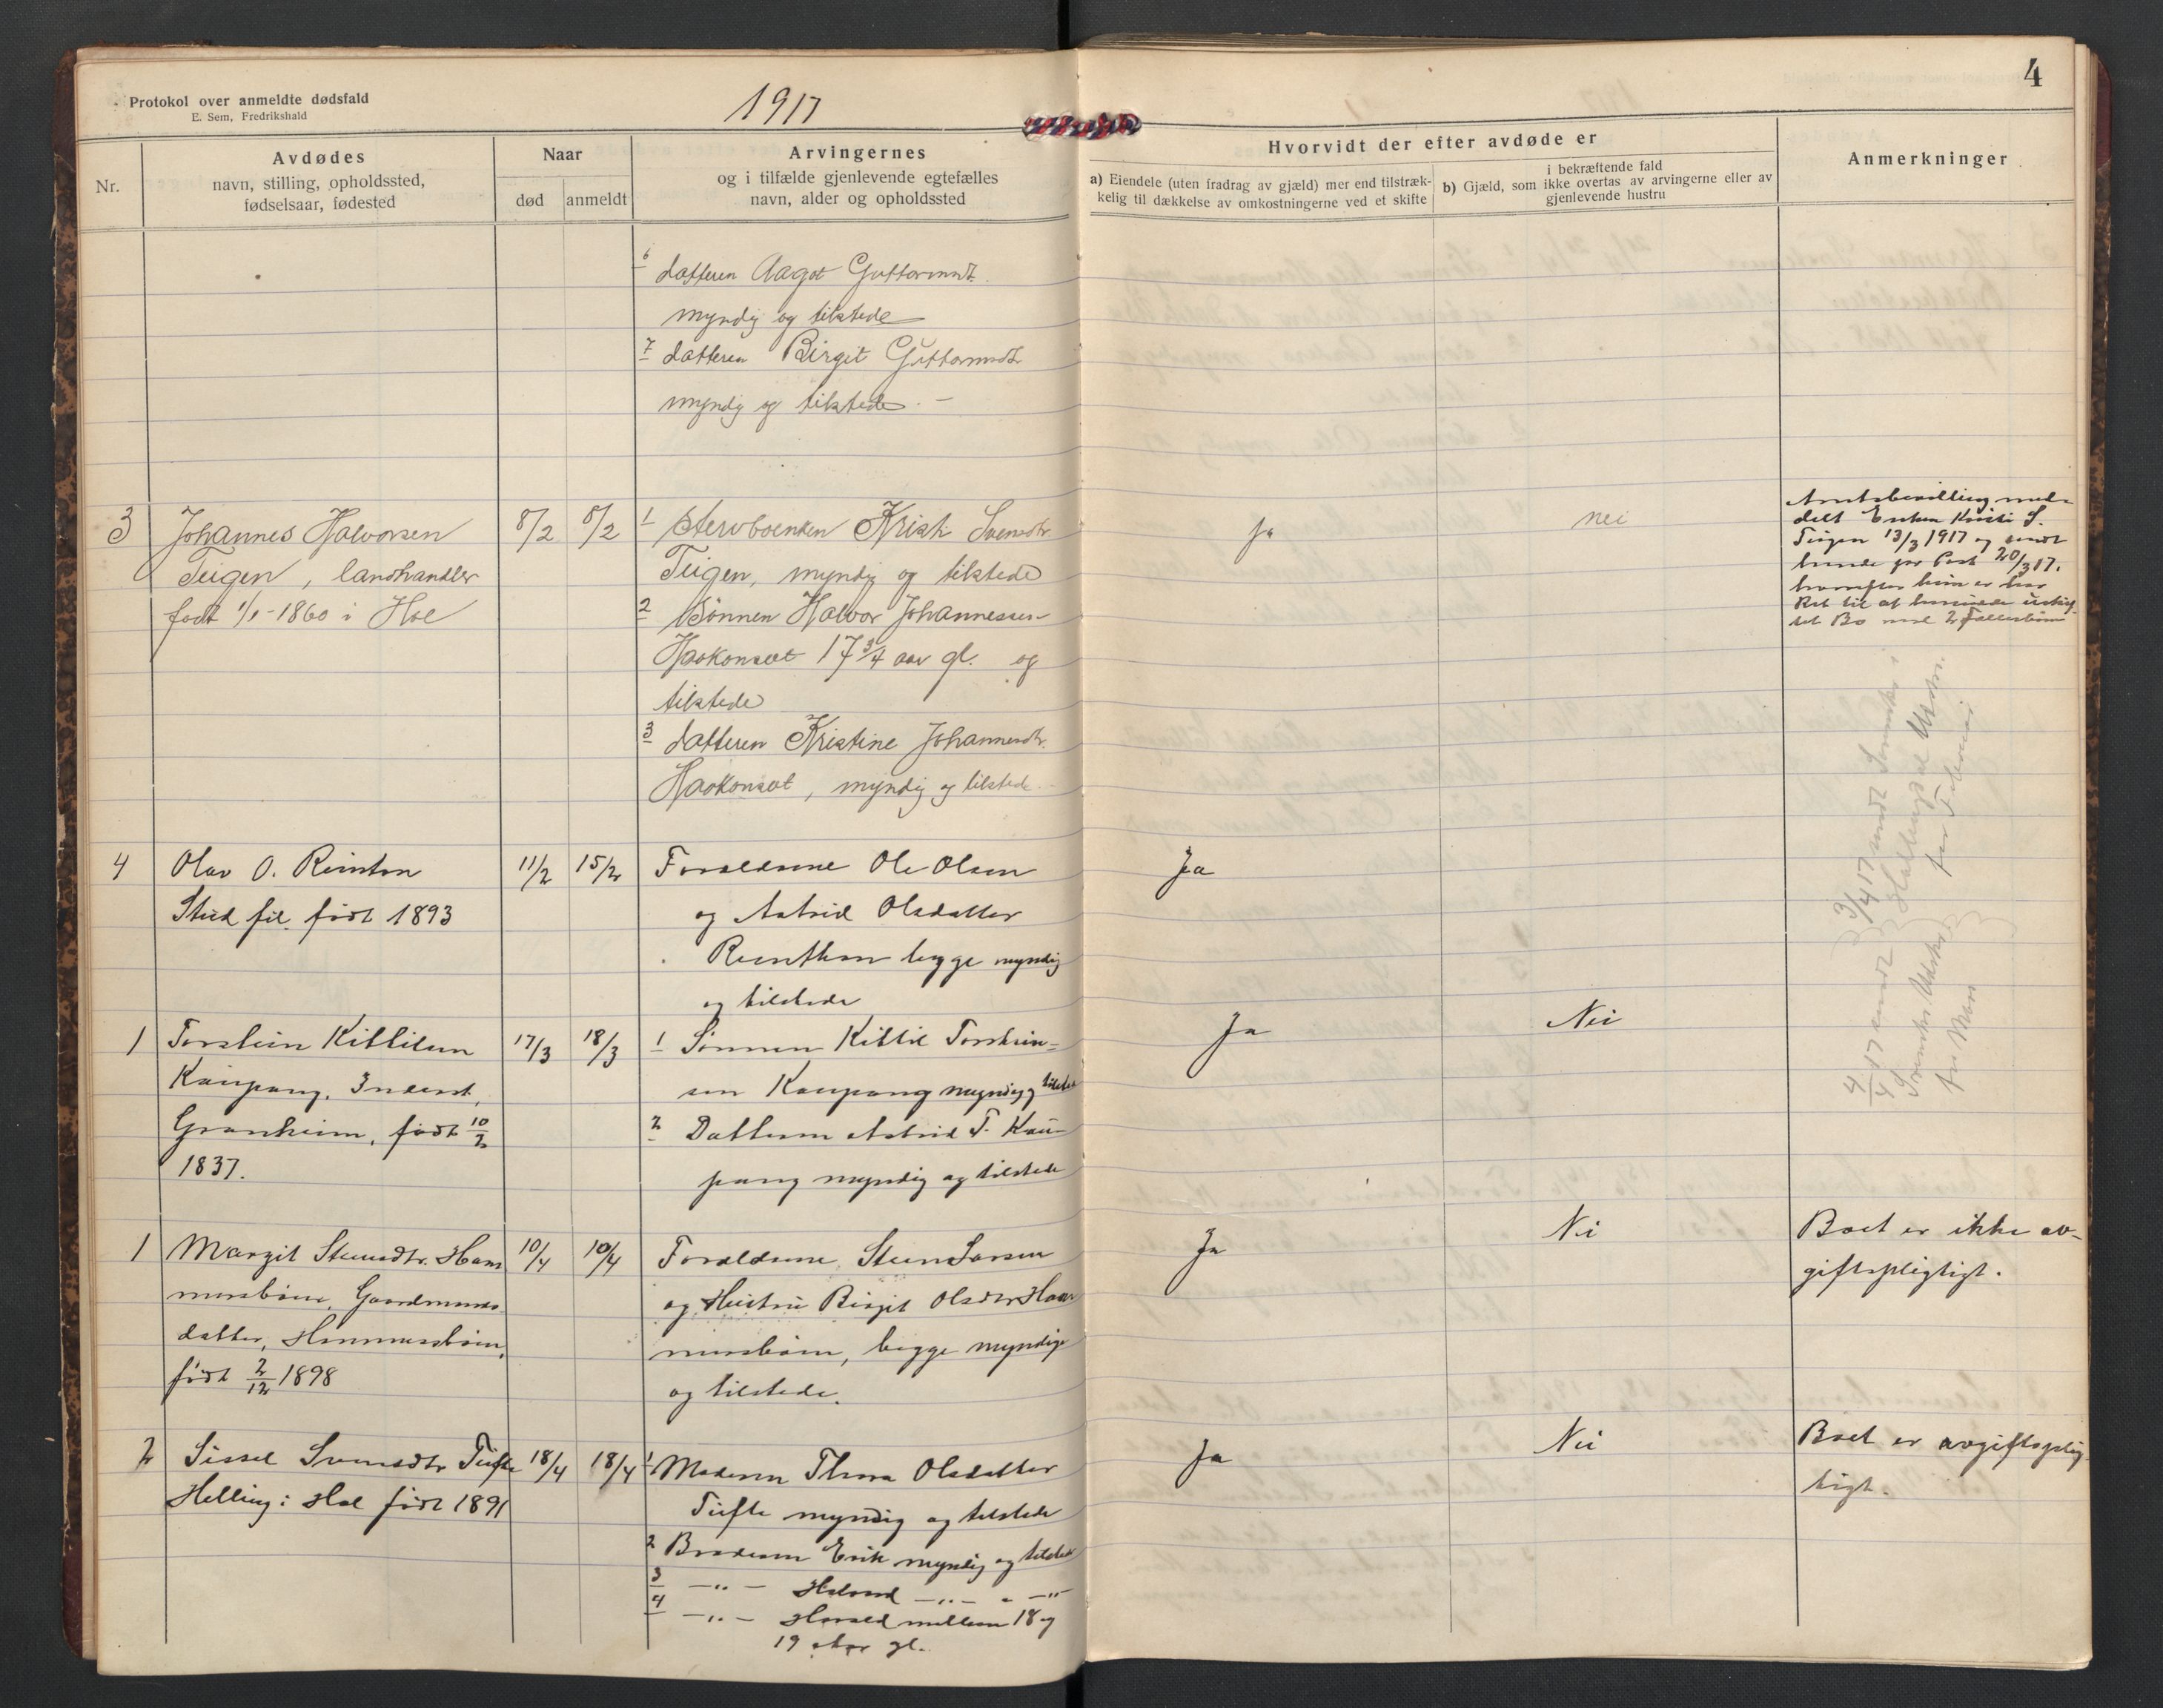 Protokol over anmeldte dødsfald
E. Sem, Fredrikshald
1917
4
Nr.
Avdødes
navn, stilling, opholdssted,
fødselsaar, fødested
Naar
død
anmeldt
Arvingernes
og i tilfælde gjenlevende egtefælles
navn, alder og opholdssted
Hvorvidt der efter avdøde er
a) Eiendele (uten fradrag av gjæld) mer end tilstræk-
kelig til dækkelse av omkostningerne ved et skifte
i bekræftende fald
b) Gjæld, som ikke overtas av arvingerne eller av
gjenlevende hustru
Anmerkninger
6 datteren Aagot Guttormsdt.
myndig og tilstede
7 datteren Birgit Guttormsdt
myndig og tilstede. -
3
Johannes Halvorsen
Teigen, landhandler
født 1/1-1860 i Hol
8/2
8/2
1 Stervboenken Kristi Svensdtr
Teigen, myndig og tilstede
2 Sønnen Halvor Johannessen
Haakonset 17 3/4 aar gl. og
tilstede
3 datteren Kristine Johannesdtr.
Haakonset, myndig og tilstede.
ja
nei
Amtsbevilling med-
delt Enken Kristi S.
Teigen 13/3 1917 og sendt
hende per Post 20/3 17.
hvorefter hun er har
Ret til at hensidde i uskif-
tet Bo med 2 Fællesbørn
4
Olav O. Reinton
Stud fil. født 1893
11/2
15/2
Forældrene Ole Olsen
og Astrid Olsdatter
Reinthon begge myndig
og tilstede
Ja
3/4 17 sendt
1
Torstein Kittilsen
Kaupang, Inderst,
Granheim, født 10/2
1837.
17/3
18/3
1 Sønnen Kittil Torstein-
sen Kaupang myndig og tilstede
2 Datteren Astrid T. Kau-
pang myndig og tilstede
Ja
Nei
4/4 17 sendt
1
Margit Steinsdtr. Ham
mersbøen, Gaardmands
datter, Hammersbøen,
født 2/12 1898
10/4
10/4
Forældrene Stein Larsen
og Hustru Birgit Olsdtr Ham-
mersbøen, begge myndige
og tilstede.
Ja
Nei
Boet er ikke av-
giftspligtigt.
2
Sissel Svensdtr Tufte
Helling i Hol født 1891
18/4
18/4
1 Moderen Thora Olsdatter
Tufte myndig og tilstede
2 Broderen Erik myndig og tilstede
3 -"- Halvord -"- -"-
4 -"- Harald mellem 18 og
19 Aar gl.
Ja
Nei
Boet er avgiftsplig-
tigt.